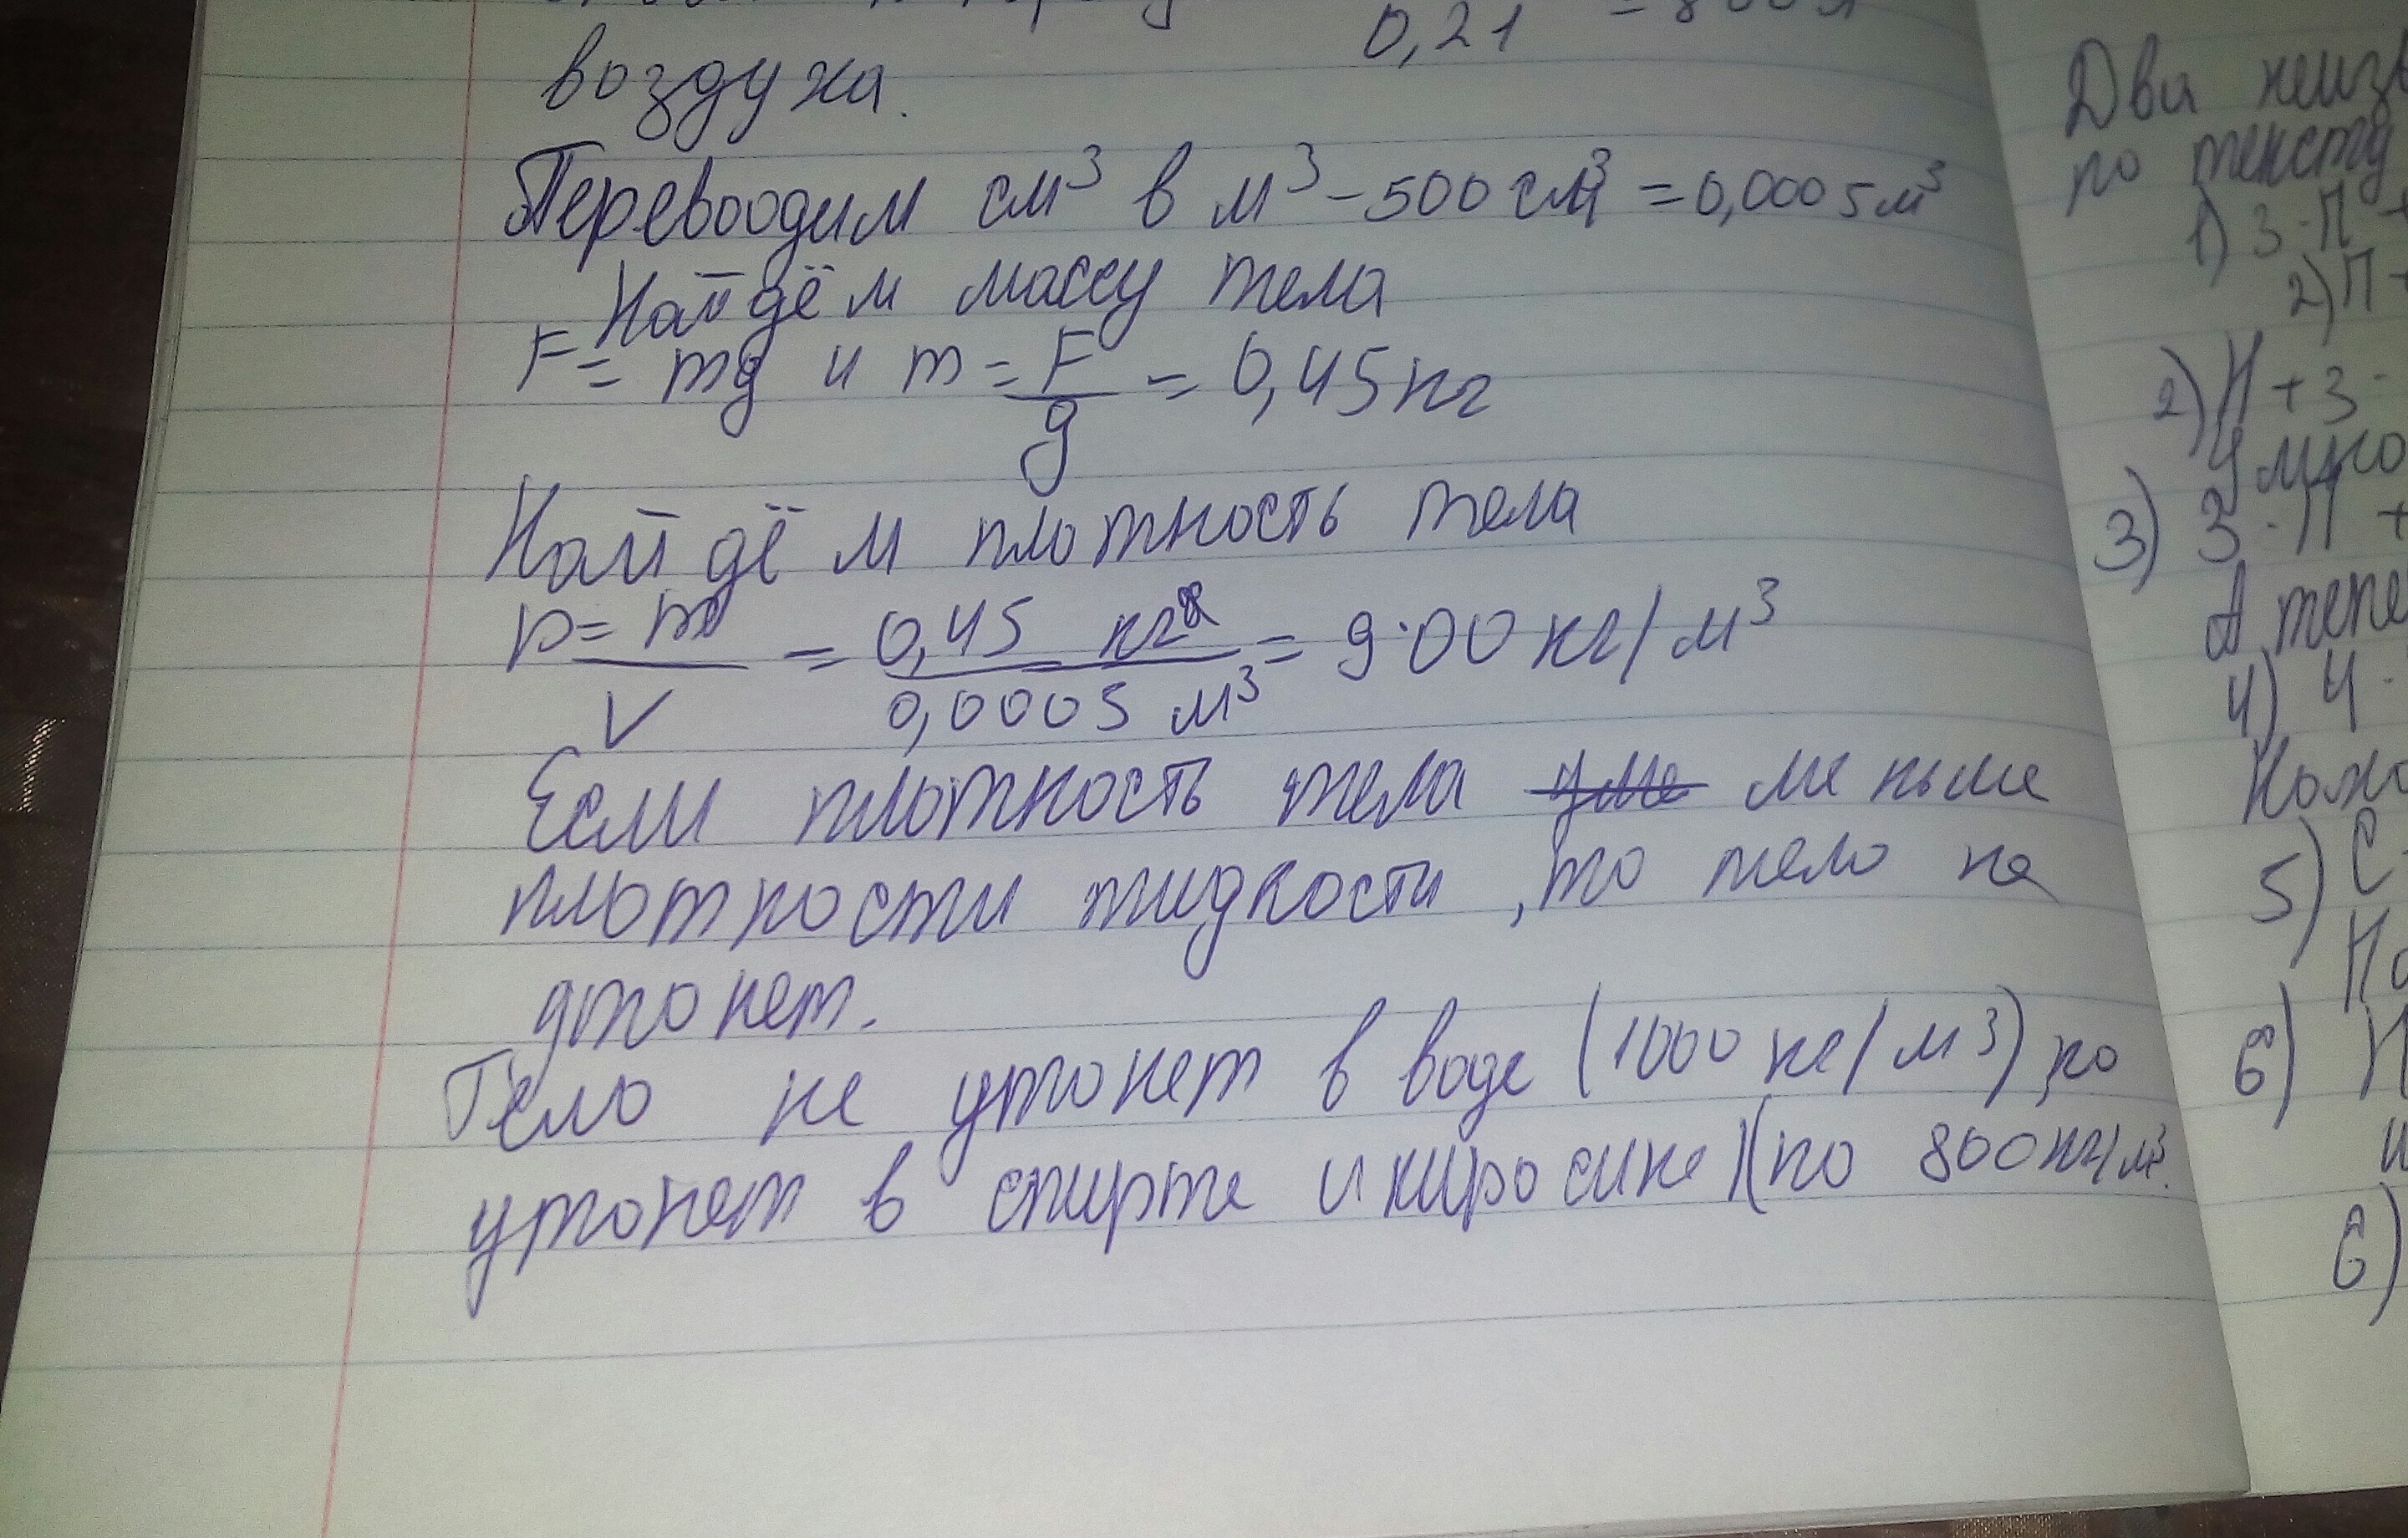 0,21 = 800л
воздуха.
Перевоодим см³ в м³ – 500 см³ = 0,0005 м³
Найдём массу тела
F = mg и m = F/g = 0,45 кг
Найдём плотность тела
p = m/V = 0,45 кг/0,0005 м³ = 9·00 кг/м³
Если плотность тела меньше
плотности жидкости, то тело не
утонет.
Тело не утонет в воде (1000 кг/м³), но
утонет в спирте и киросине)(по 800 кг/м³.
Два
по тексту
1) 3·П +
2) П +
2) П + 3·
3) 3·П +
4) 4·
5) С
6)
6)